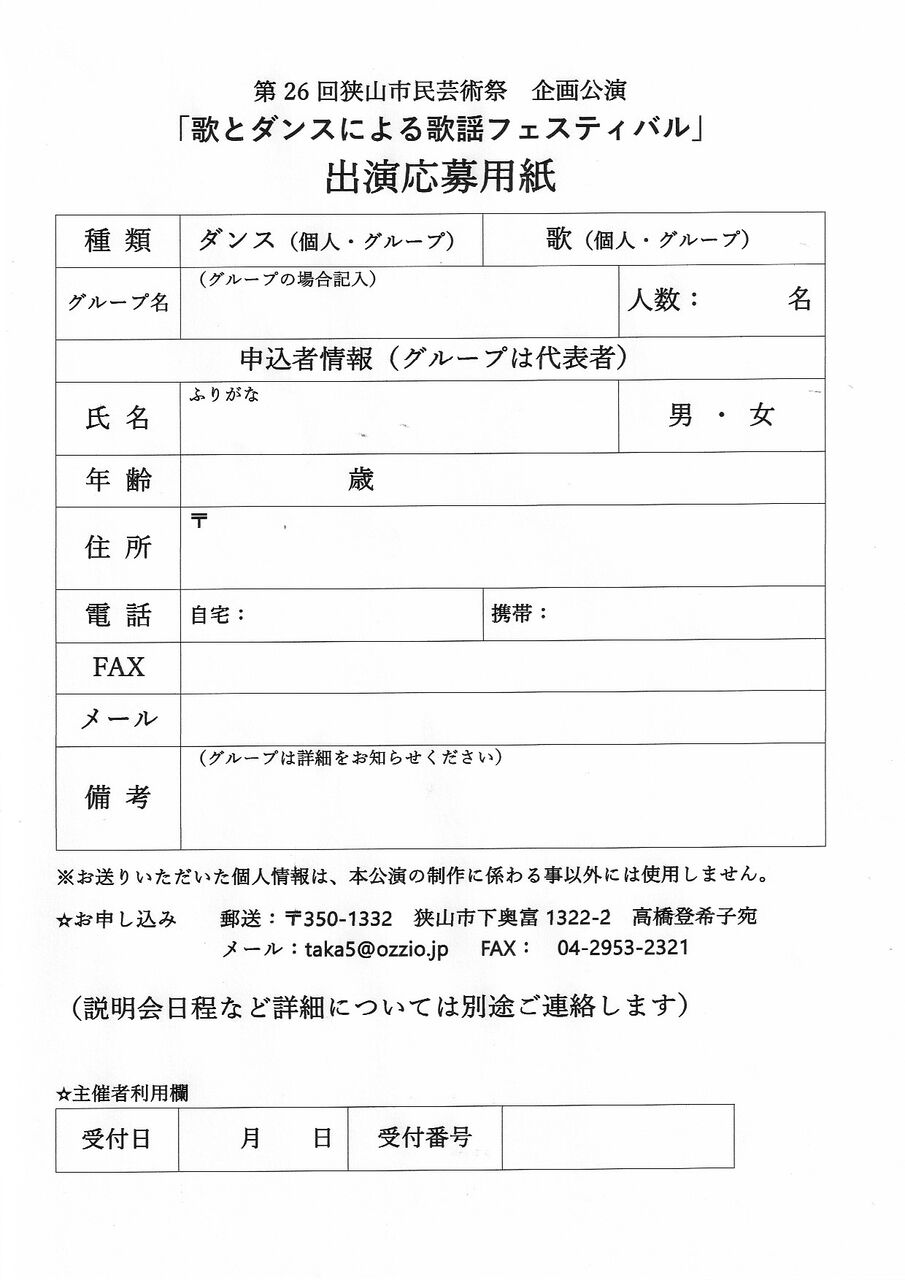 第 26 回狭山市民芸術祭　企画公演
「歌とダンスによる歌謡フェスティバル」
出演応募用紙
種 類　ダンス（個人・グループ）　歌（個人・グループ）
グループ名　（グループの場合記入）　人数：　名
申込者情報（グループは代表者）
氏 名　ふりがな　男 ・ 女
年 齢　歳
住 所　〒
電 話　自宅：　携帯：
FAX
メール
備 考　（グループは詳細をお知らせください）
※お送りいただいた個人情報は、本公演の制作に係わる事以外には使用しません。
☆お申し込み　郵送：〒350-1332　狭山市下奥富 1322-2　高橋登希子宛
メール：taka5@ozzio.jp　FAX：　04-2953-2321
（説明会日程など詳細については別途ご連絡します）
☆主催者利用欄
受付日　月　日　受付番号